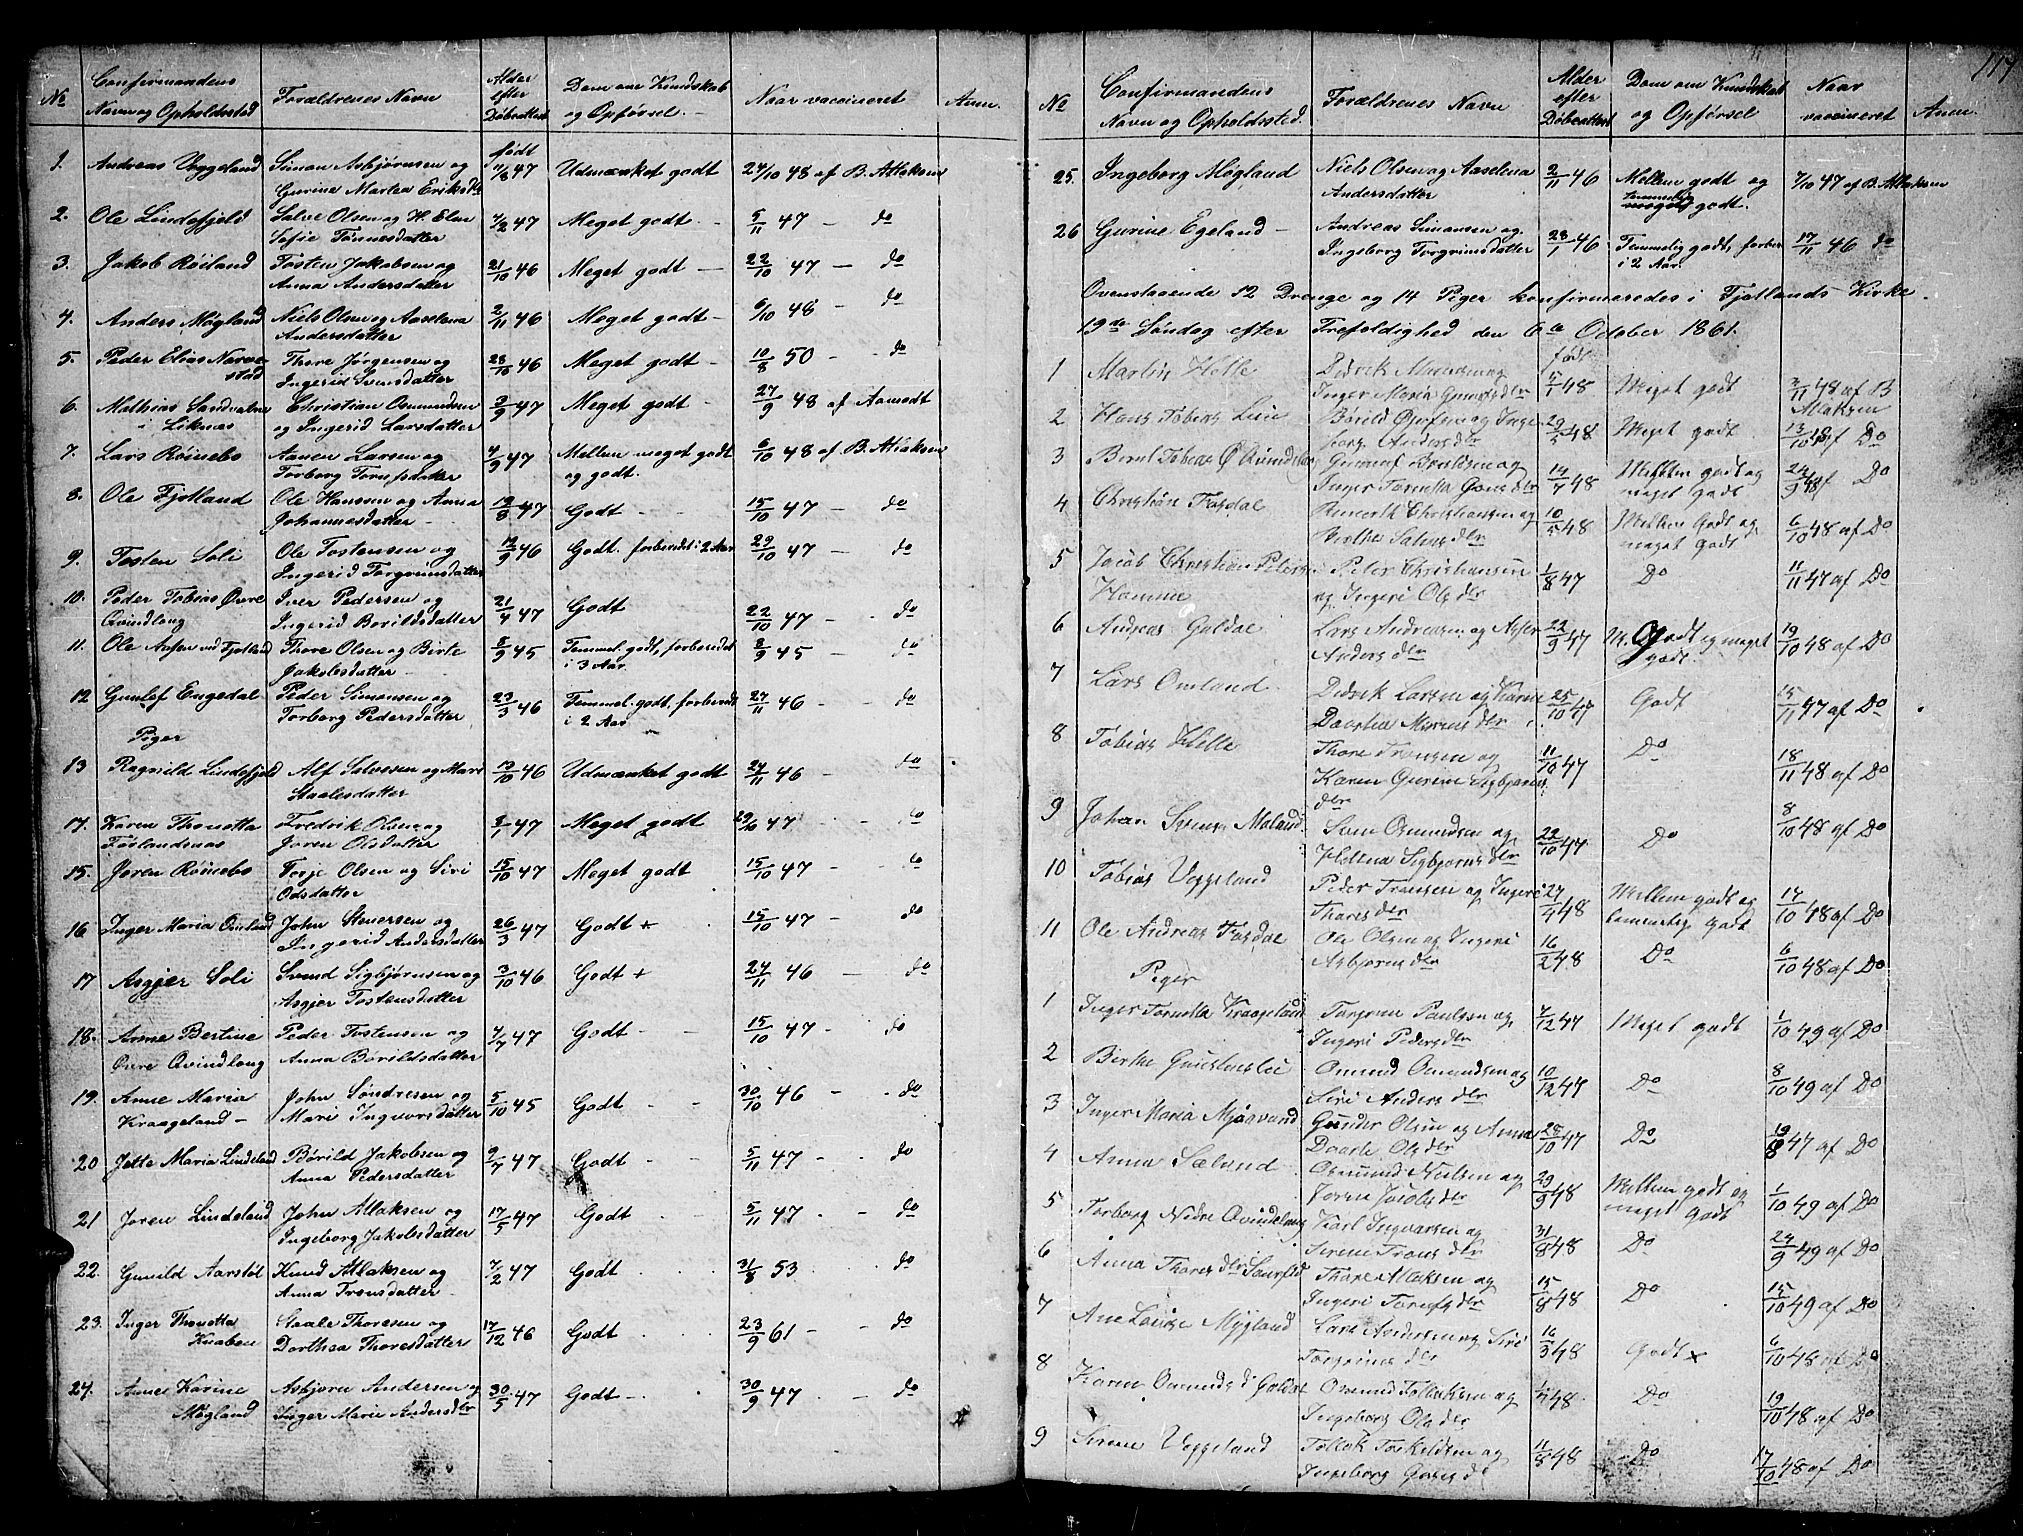 No Confirmandens Navn og Opholdssted Forældrenes Navn Alder efter Døbeattest Dom om Kundskab og Opførsel. Naar vaccineret Anm.
født
1. Andreas Veggeland Simon Asbjørnsen og 11/8 47 Udmærket godt 24/10 48 af B. Atlaksen
Gurine Martea Eriksdtr
2. Ole Lindefjeld Salve Olsen og H. Elen 7/2 47 Meget godt - 5/11 47 - do
Sofie Tønnesdatter
3. Jakob Røiland Tosten Jakobsen og 21/10 46 Meget godt - 22/10 47 - do
Anna Andersdatter
4. Anders Møgland Niels Olsen og Aaselena 2/11 46 Meget godt - 6/10 48 do
Andersdatter
5. Peder Elias Narve- Thore Jørgensen og 28/10 46 Meget godt - 10/8 50 - do
stad Ingerid Svensdatter
6. Mathias Sandvatne Christian Osmundsen 3/9 47 Meget godt - 27/9 48 af Aamodt
i Liknes og Ingerid Larsdatter
7. Lars Røinebo Aanen Larsen og 4/9 47 Mellem meget godt 6/10 48 af B. Atlaksen
Torborg Tornesdatter og godt.
8. Ole Fjotland Ole Hansen og Anna 19/8 47 Godt - 15/10 47 - do
Johannesdatter -
9. Tosten Soli Ole Tostensen og 12/9 46 Godt. forberedt i 2 Aar 29/10 47 - do
Ingerid Torgrimsdatter
10. Peder Tobias Øvre Iver Pedersen og 21/4 47 Godt 22/10 47 - do
Qvindlong Ingerid Borildsdatter
11. Ole ved Fjotland Thore Olsen og Birte 8/9 45 Temmel. godt, forberedt 8/9 45 - do
Jakobsdatter i 3 Aar.
12 Gunlef Engedal Peder Simonsen og 23/3 46 Temmel. godt, forberedt 27/11 46 - do
Torborg Pedersdatter i 2 Aar
Piger
13 Ragnild Lindefjeld Alf Salvesen og Mari 13/10 46 Udmærket godt 24/11 46 - do
Staalesdatter
14. Karen Thonetta Fredrik Olsen og 8/1 47 Meget godt 29/10 47 - do
Foslandsnes Joren Olsdatter
15. Joren Røinebo Terje Olsen og Siri 15/10 47 Meget godt 15/10 47 - do
Odsdatter
16 Inger Maria Omland John Stenersen og 26/3 47 Godt + 15/10 47 - do
Ingerid Andersdatter
17 Asgjer Soli Svend Sigbjørnsen og 3/10 46 Godt + 24/11 46 - do
Asgjer Tostensdatter
18. Anne Bertine Peder Tostensen og 7/7 47 Godt - 15/10 47 - do
Øvre Qvindlong Anna Børildsdatter
19. Anne Maria John Søndresen og 5/10 45 Godt - 30/10 46 - do
Kraageland - Mari Ingvorsdatter
20 Jette Maria Lindeland Børild Jakobsen og 9/7 47 Godt - 5/11 47 - do
Anna Pedersdatter
21 Joren Lindeland John Atlaksen og 17/5 47 Godt 5/11 47 - do
Ingeborg Jakobsdatter
22. Gunild Aarstøl Knud Atlaksen og 7/2 47 Godt 31/8 53 do
Anna Tronsdatter
23. Inger Thonetta Staale Thoresen og 17/12 46 Godt 23/9 61 - do
Knaben Dorthea Thoresdatter
24. Anne Karine Asbjorn Andersen og 30/5 47 Godt - 30/9 47 - do
Møgland Inger Marie Andersdtr
No Confirmandens Navn og Opholdssted. Forældrenes Navn Alder efter Døbeattest Dom om Kundskab og Opførsel Naar vaccineret Anm.
25. Ingeborg Møgland Niels Olsen og Aaselena 2/11 46 Mellem godt og 7/10 47 af B. Atlaksen
Andersdatter temmelig godt.
26 Gurine Egeland - Andreas Simonsen og 28/1 46 Temmelig godt, forber 17/11 46 do
Ingeborg Torgrimsdatter i 2 Aar.
Ovenstaaende 12 Drenge og 14 Piger konfirmeredes i Fjotlands Kirke
19de Søndag efter Trefoldighed den 6te October 1861.
født
1 Martin Helle Didrik Monsen og 17/1 48 Meget godt 3/11 48 af B
Inger Maria dtr Atlaksen
2 Hans Tobias Lien Børild og Inge 29/5 48 Meget godt 13/10 48 af Do
borg Andersdtr
3 Bernt Tobias Ø Qvindslog Gunnuf Boildsen og 14/7 48 Mellem godt og 24/9 48 af Do
Inger Tornetta dtr meget godt
4 Christian Fosdal Christiansen og 10/5 48 Mellem Godt og 6/10 48 af Do
Berthe Salvesdtr meget Godt
5 Jacob Christian Peters Peter Christiansen 1/8 47 Do 11/11 47 af Do
Homme og Ingeri Olsdtr
6 Andreas Guldal Lars Andreasen og Asjer 22/9 47 M. Godt og meget 19/10 48 af Do
Andersdtr godt.
7 Lars Omland Didrik Larsen og Karen 25/10 47 Godt 15/11 47 af Do
Dorthea Monsdtr
8 Tobias Helle Thore Tronsen og 11/10 47 Do 18/11 48 af Do
Karen Gurine Sigbjørns
dtr
9 Johan Svens Moland Sven Osmundsen og 22/10 47 Do 8/10 48 af Do
Helena Sigbjørnsdtr
10 Tobias Veggeland Peder Tronsen og Ingeri 27/4 48 Mellem godt og 14/10 48 af Do
Thoresdtr temmelig Godt
11 Ole Andreas Fosdal Ole Olsen og Ingeri 16/2 48 Do 6/10 48 af Do
Asbjornsdtr
Piger
1 Inger Tornetta Kraageland Torjom Paulsen og 7/12 47 Meget godt 1/10 49 af Do
Ingeri Pedersdtr
2 Birthe Omund Omundsen og 10/12 47 Do 8/10 49 af Do
Siri Andersdtr
3 Inger Maria Mjaavand Gunder Olsen og Anna 28/10 47 Do 19/8 47 af Do
Daarte Olsdtr
4 Anna Sæland Osmund Nielsen og 29/9 48 Mellem godt og 1/10 49 af Do
Joren Jacobsdtr meget Godt
5 Torborg Nedre Qvindslong Karl Ingvarsen og 31/8 48 Do 24/9 49 af Do
Sirene Tronsdtr
6 Anna Thoresdtr Thore Atlaksen og 15/8 48 Do 15/10 49 af Do
Ingeri dtr
7 Ane Louise Mygland Lars Andersen og Siri 16/3 48 Godt x 6/10 48 af Do
Torgrimsdtr
8 Karen Osmundsd Guldal Osmund Tollaksen og 1/7 48 Do 19/10 48 af Do
Ingeborg Olsdtr
9 Sirene Veggeland Tollak Torkildsen og 11/8 48 Do 17/10 48 af Do
Ingeborg